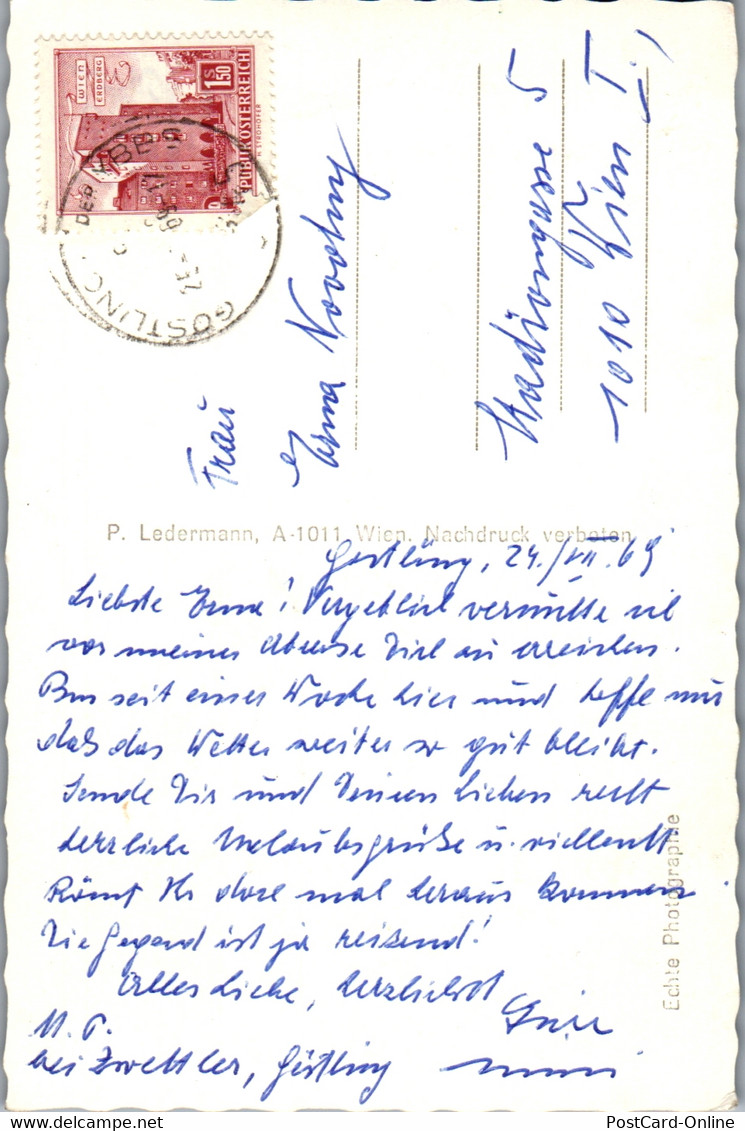 WIEN
ERDBERG
S 1.50
REPUBLIK ÖSTERREICH
GÖSTLING
DER YBBS
Frau
Erna Novotny
Stadiongasse 5
1010 Wien I.,
P. Ledermann, A-1011 Wien. Nachdruck verboten
Göstling, 24./VII. 69
Liebste Erna! Vergeblich versuchte ich
vor meiner Abreise Dich zu erreichen.
Bin seit einer Woche hier und hoffe nur
daß das Wetter weiter so gut bleibt.
Sende Dir und Deinen Lieben recht
herzliche Urlaubsgrüße u. vielleicht
könnt Ihr doch mal heraus kommen
Die Gegend ist ja reizend!
Alles Liebe, herzlichst
bei Zwettler, Göstling
Echte Photographie
PostCard-Online